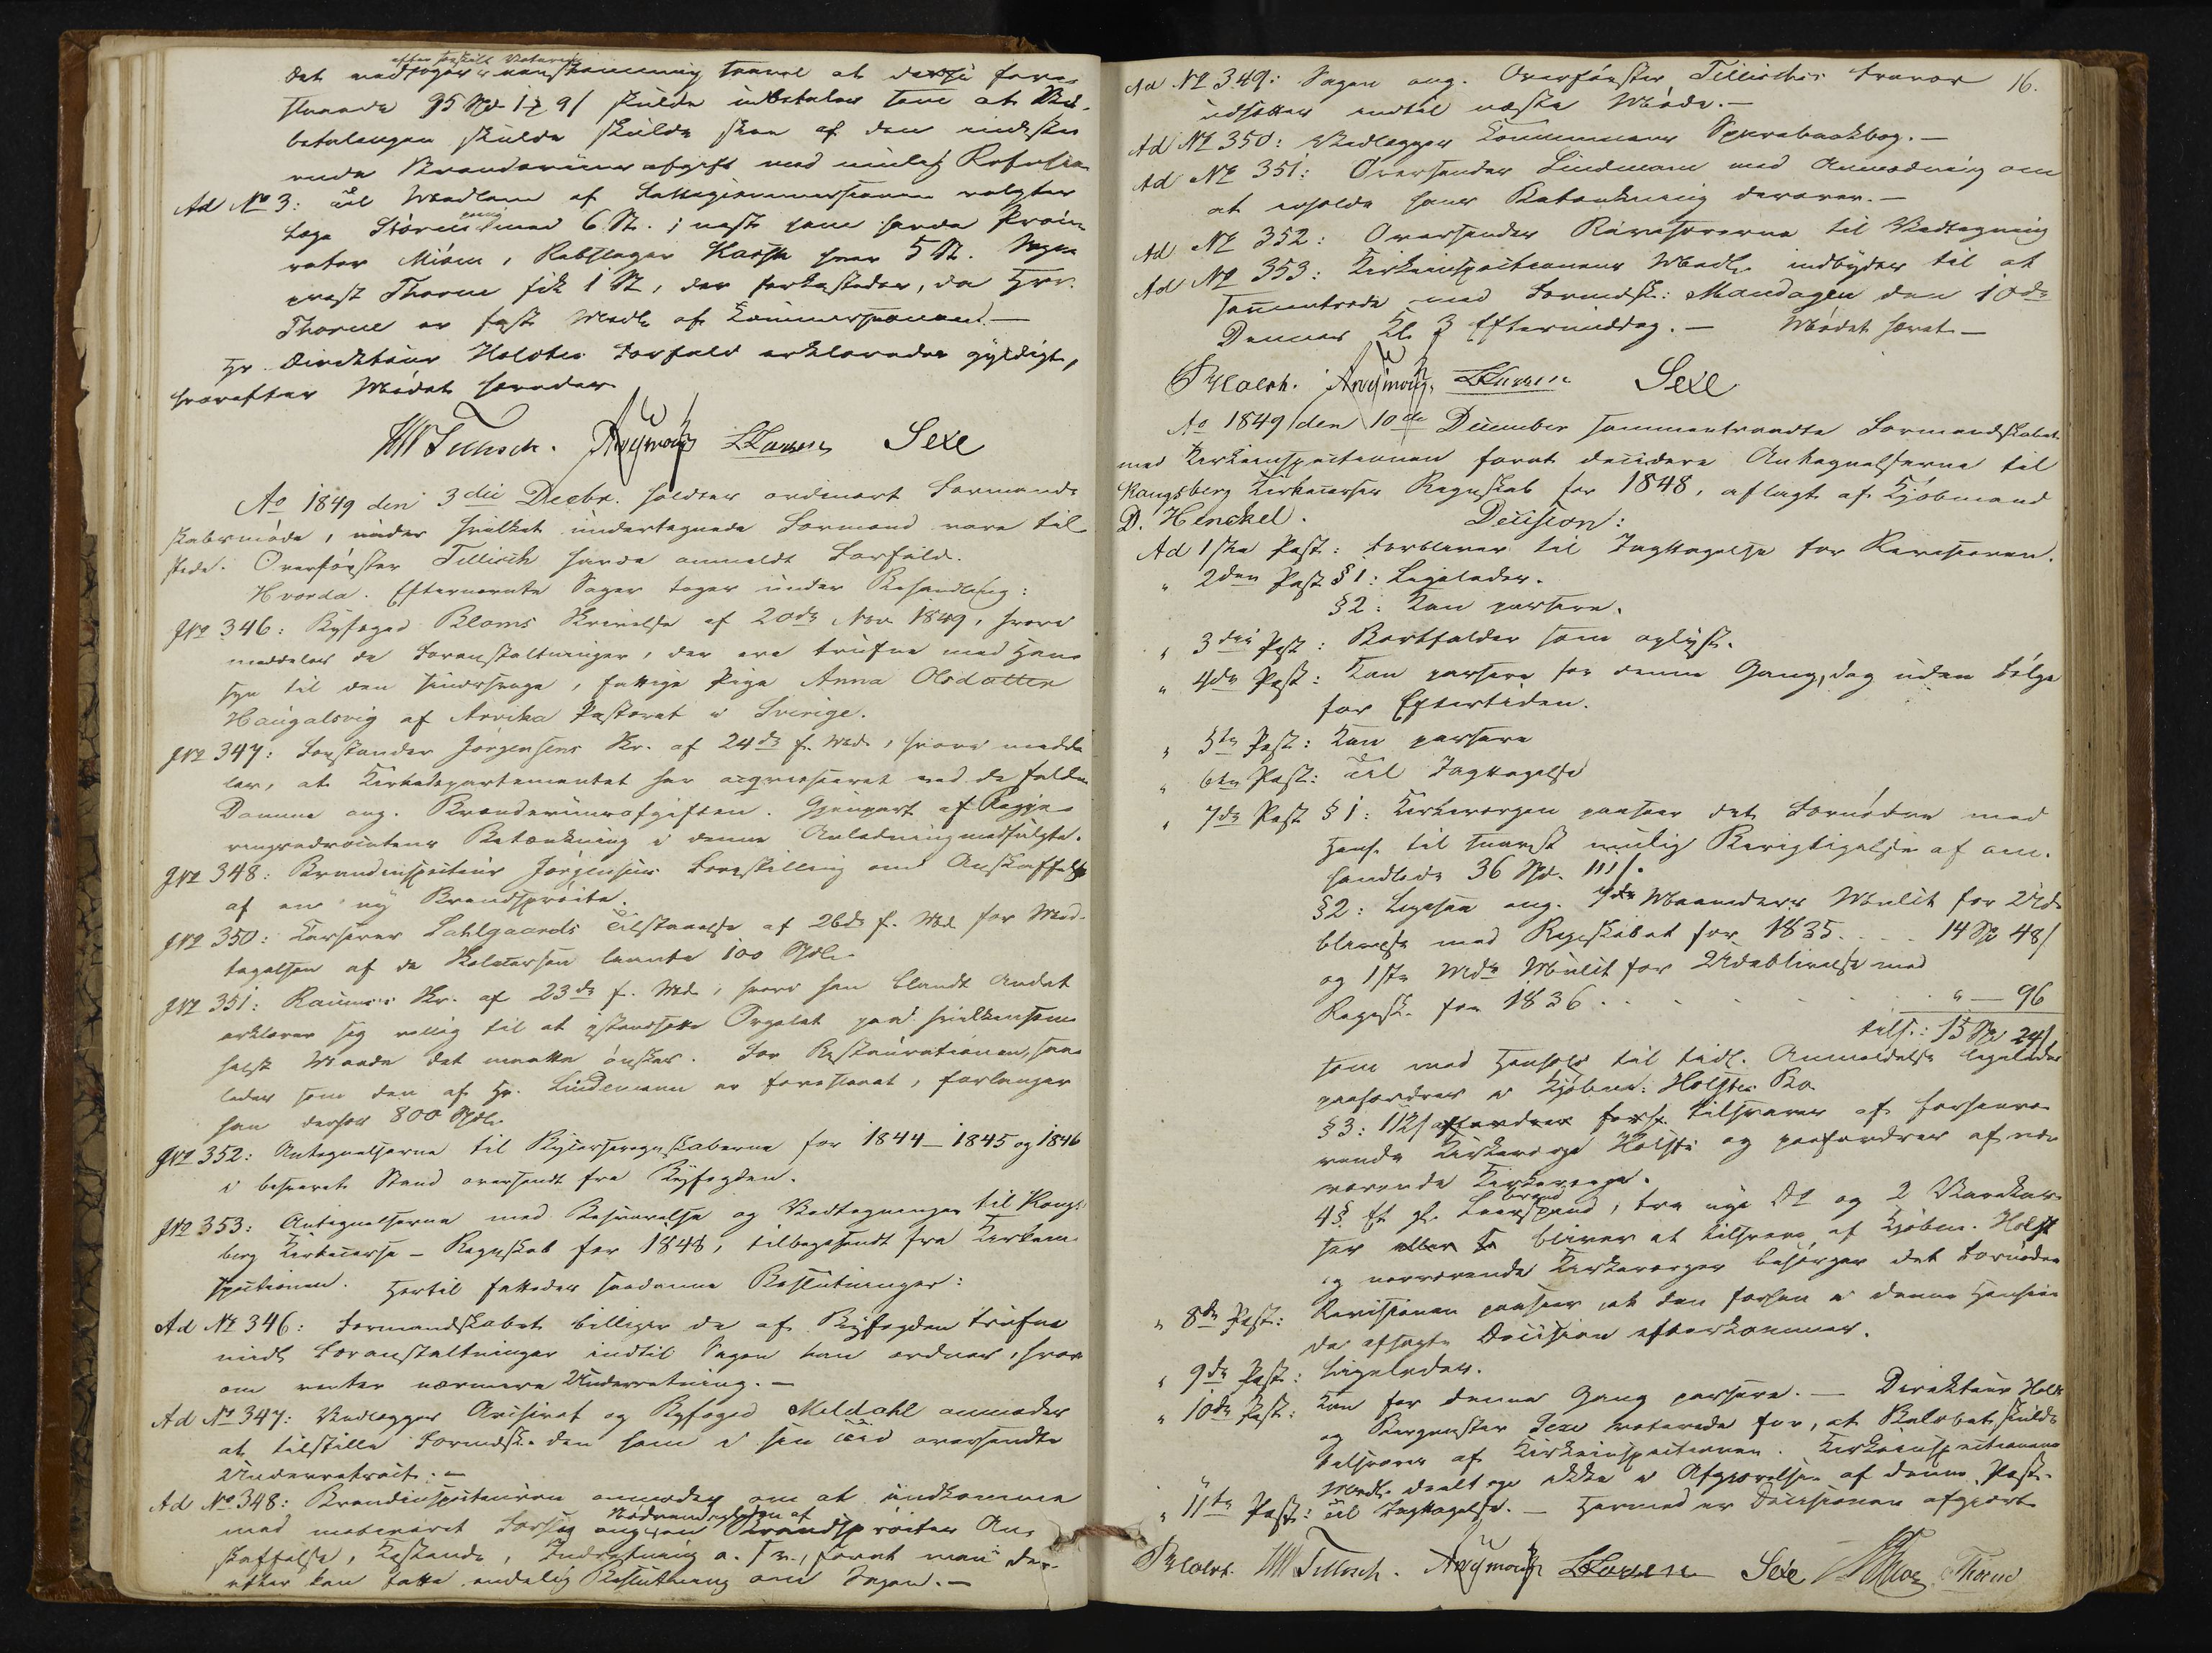 efter særskilt Votering
det vedtoges eenstemmig saavel at disse fore-
staaende 95 Spd 1 # 9 / skulde indbetales som at Ud-
betalingen skulde skulde skee af den indestaa-
ende Brænderiviinsafgift med muligt Refusion
Ad No 3: til Medlem af Fattigcommissionen valgtes
Læge med 6 St.; næst ham havde Procu-
rator Moum, Rebslager Kaasa hver 5 St. Sogne-
præst Thorne fik 1 St, der forkastedes, da Hr.
Thorne er fast Medl. af Kommissionen.—
Hr. Direkteur Holsts Forfald erklæredes gyldigt,
hvorefter Mødet hævedes
Tillisch. LLarsen Sexe
Ao 1849 den 3die Decbr. holdtes ordinært Formands-
skabsmøde, under hvilket undertegnede Formænd vare til-
stede. Overførster Tillisch havde anmeldt Forfald.
Efternævnte Sager toges under Behandling:
JNo 346: Byfoged Bloms Skrivelse af 20de Nov. 1849, hvori
meddeles de Foranstaltninger, der ere trufne med Hen-
syn til den sindssvage, fattige Pige Anna Olsdatter
Haugalsvig af Arvika Pastorat i Sverige.
JNo 347: Forstander Jørgensens Skr. af 24de f. Md., hvori medde-
les, at Kirkedepartementet har acqviesceret ved de faldne
Domme ang. Brænderiviinsafgiften. Gjenpart af Regje-
ringsadvocatens Betænkning i denne Anledning medfulgte.
JNo 348: Brandinspecteur Jørgensens Forestilling om Anskaffelse
af en ny Brandsprøite.
JNo 350: Kasserer Dahlgaards Tilstaaelse af 26de f. Md. for Mod-
tagelsen af de laante 100 Spdlr.
JNo 351: Skr. af 23de f. Md., hvori han blandt Andet
erklærer sig villig til at istandsætte Orgelet paa hvilkensom-
helst Maade det maatte ønskes. For Restaurationen, saa-
ledes som den af Hr. Lindemann er foreslaaet, forlanger
han derfor 800 Spdlr.
JNo 352: Antegnelserne til Bykasseregnskaberne for 1844–1845 og 1846
i besvaret Stand oversendt fra Byfogden.
JNo 353: Antegnelserne med Besvarelse og Vedtegninger til Kongs-
berg Kirkecasse-Regnskab for 1848, tilbagesendt fra Kirkein-
spectionen. Hertil fattedes saadanne Beslutninger:
Ad No 346: Formandskabet billiger de af Byfogden trufne
midl. Foranstaltninger indtil Sagen kan ordnes, hvor-
om ventes nærmere Underretning.—
Ad No 347: Vedlægges Archivet og Byfoged Meldahl anmodes
at tilstille Formdsk. den ham i sin Tid oversendte
Underretsact.—
Ad No 348: Brandinspecteuren anmodes om at indkomme
Nødvendigheden af
med motiveret Forslag angaaende Brandsprøiters An-
skaffelse, Bekostende, Indretning o. s. v., forat man der-
efter kan fatte endelig Beslutning om Sagen.—
16.
Ad No 349: Sagen ang. Overførster Tillisches
udsættes indtil næste Møde.—
Ad No 350: Vedlægges Kommunens Sparebankbog.—
Ad No 351: Oversendes Lindeman med Anmodning om
at erholde hans Betænkning derover.—
Ad No 352: Oversendes Revisorerne til Vedtegning
Ad No 353: Kirkeinspectionens Medl. indbydes til at
sammentræde med Formdsk: Mandagen den 10de
Dennes Kl. 3 Eftermiddag.— Mødet hævet.—
LLarsen Sexe
Ao 1849 den 10de December sammentraadte Formandskabet
med Kirkeinspectionen forat decidere Antegnelserne til
Kongsberg Kirkecasses Regnskab for 1848, aflagt af Kjøbmand
D. Henckel. Decision:
Ad 1ste Post: Forbliver til Iagttagelse for Revisionen.
" 2den Post § 1: Ligeledes.
§ 2: Kan passere.
" 3die Post: Bortfalder som oplyst.
" 4de Post: Kan passere for denne Gang, dog uden Følge
for Eftertiden.
" 5te Post: Kan passere
" 6te Post: Til Iagttagelse
" 7de Post § 1: Kirkeværgen paasees det Fornødne med
Hens. til snarest mulig Berigtigelse af om-
handlede 36 Spd. 111 /.
§ 2: Ligesaa ang. Maaneders Mulct for Ude-
blivelse med Regnskabet for 1835 . . . 14 Sp 48 /
og 1ste Mds Mulct for Udeblivelse med
Regnsk. for 1836 . . . . . " — 96
tils.: 15 Sp 24 /
som med Henhold til tidl. Anmeldelse ligeledes
paafordres i Kjøbm: Holsts Bo.
§ 3: 112 / tilsvares af forhenvæ-
rende Kirkeværge Holst og paafordres af nær-
værende Kirkeværge.
4§. Et gl. , tre nye Do og 2
ser bliver at tilsvare af Kjøbm. Holst
og nærværende Kirkeværge besørger det Fornødne
" 8de Post: Revisionen paaseer at den forhen i denne Henseen-
de afsagte Decision efterkommes.
" 9de Post: Ligeledes.
" 10de Post: Kan for denne Gang passere.— Direkteur Holst
og Bergmester Sexe voterede for, at Beløbet skulde
tilsvares af Kirkeinspectionen. Kirkeinspectionens
Medl. deeltoge ikke i Afgjørelsen af denne Post.
" 11te Post: Til Iagttagelse.— Hermed er Decisionen afgjort
Tillisch. LLarsen Sexe Thorne